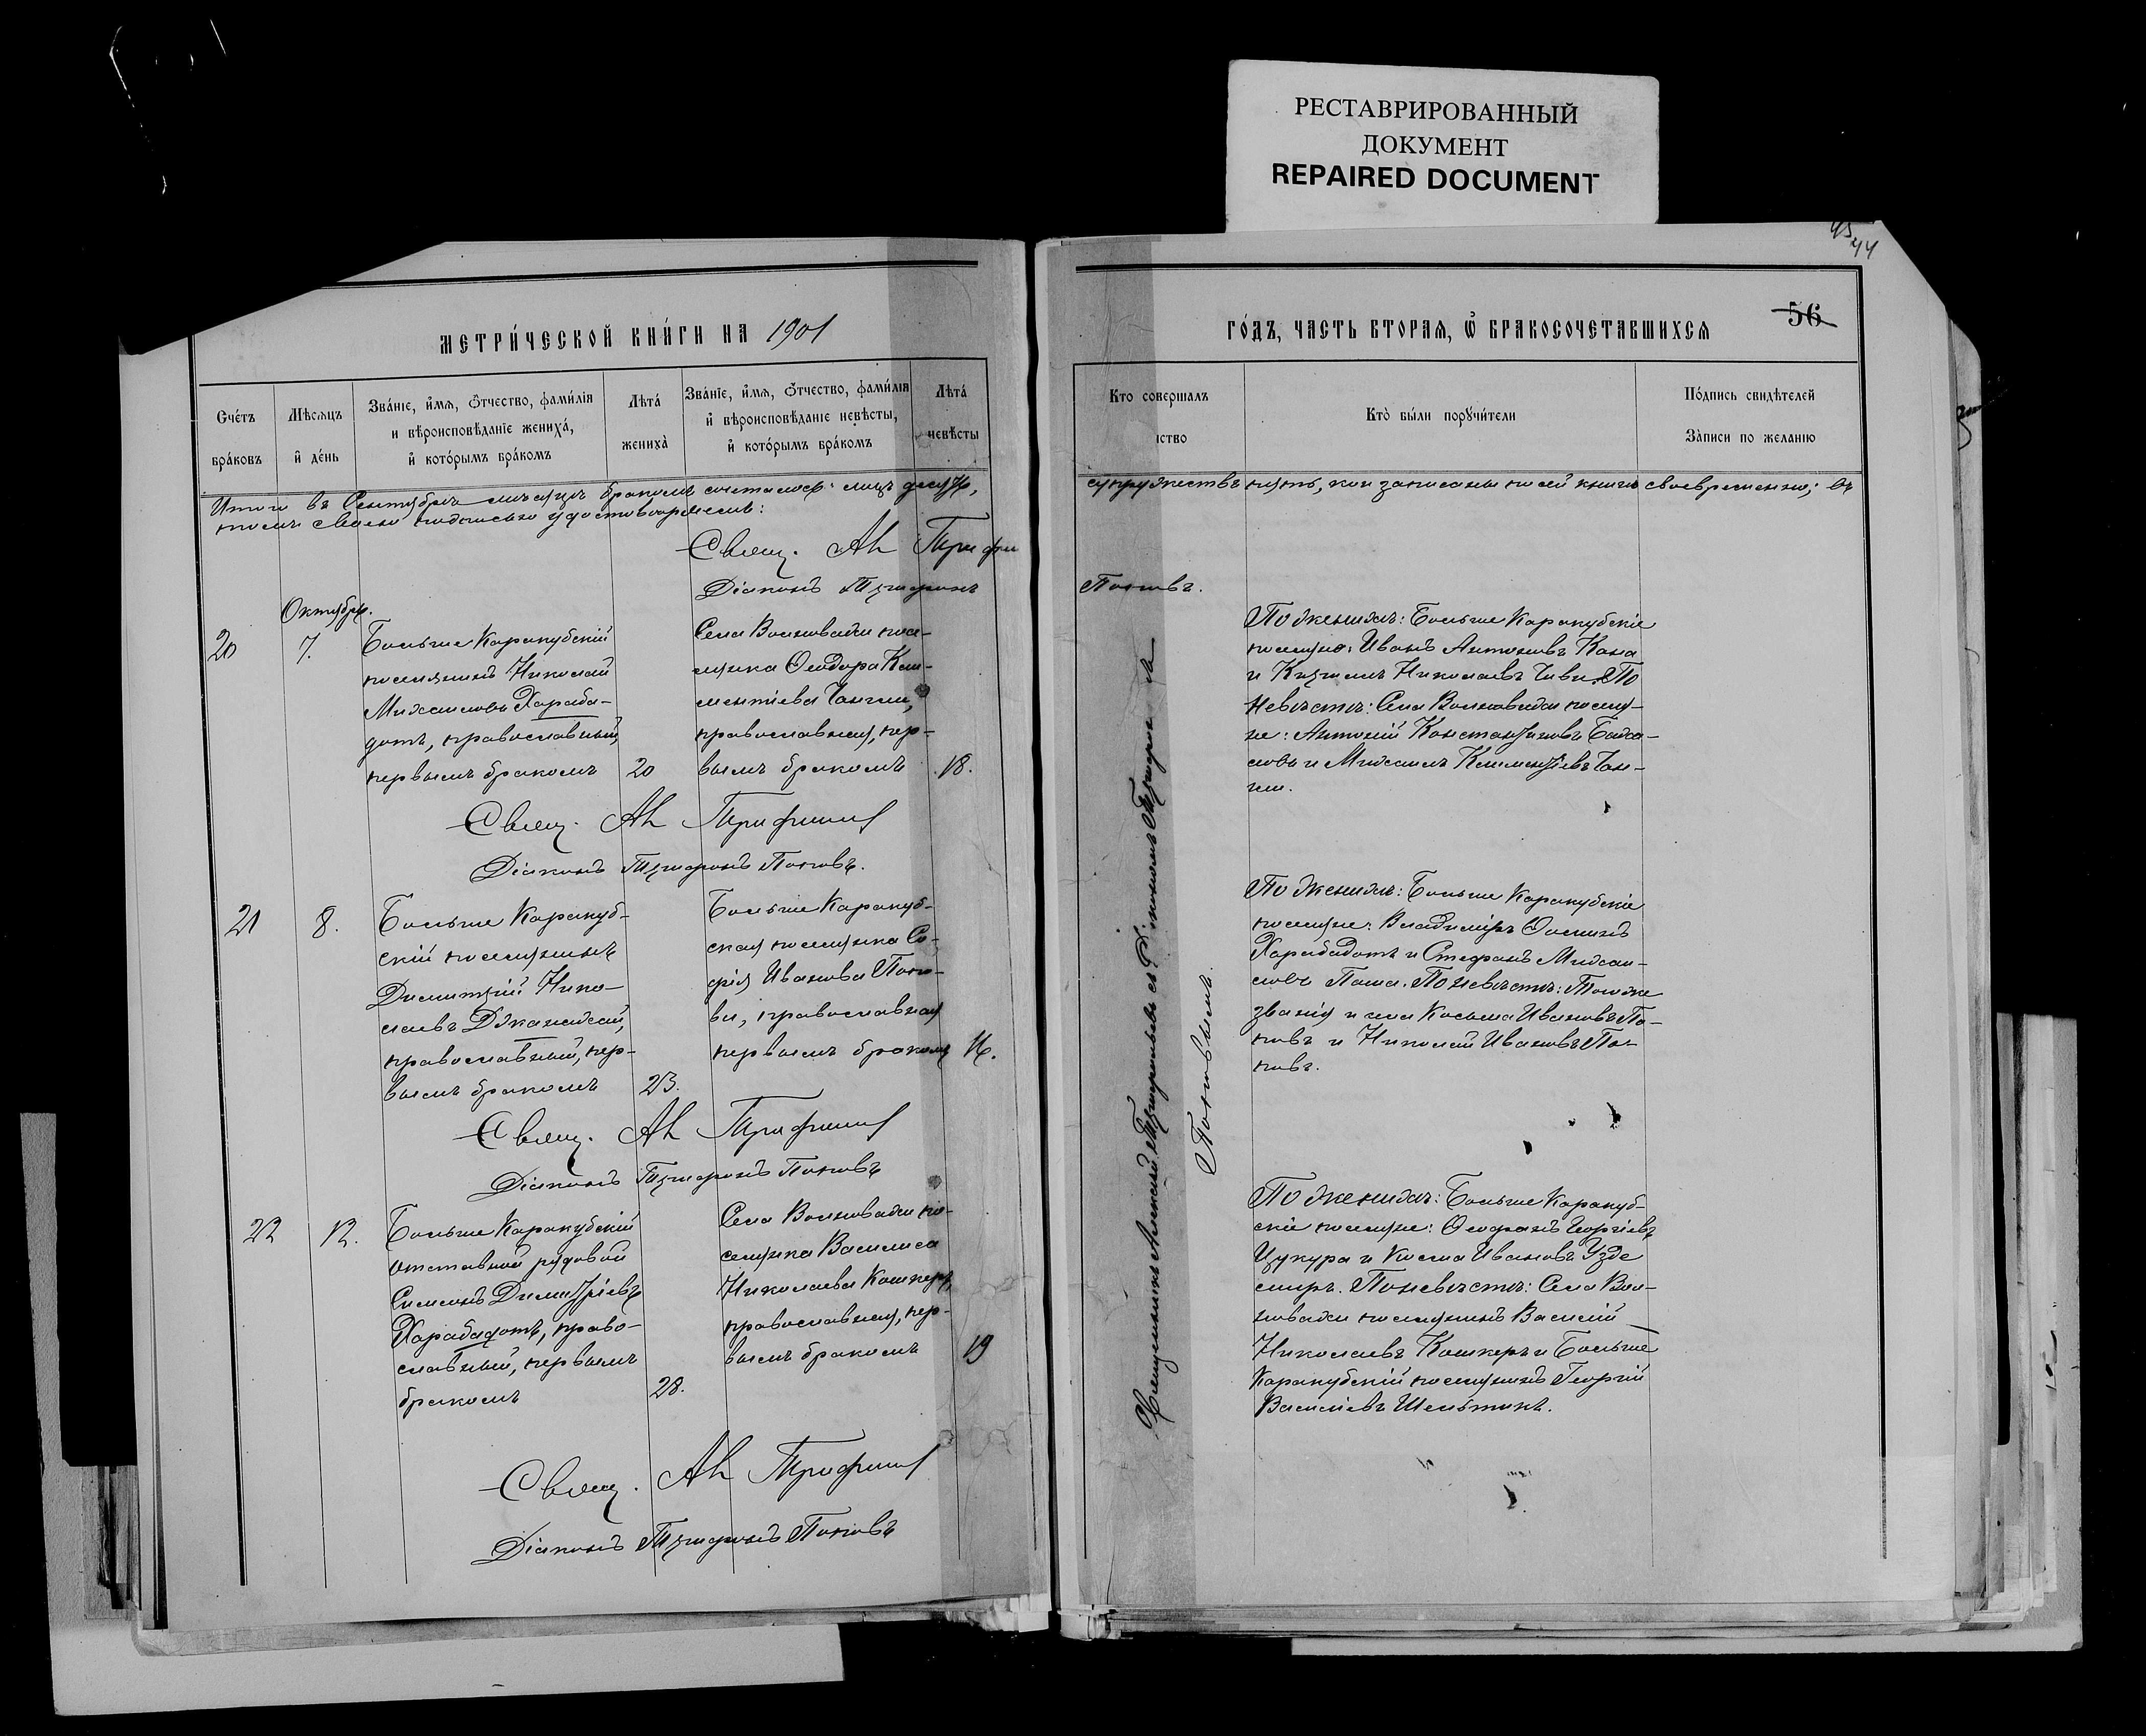 РЕСТАВРИРОВАННЫЙ
ДОКУМЕНТ
REPAIRED DOCUMENT
44
56
МЕТРИ́ЧЕСКОЙ КНИ́ГИ НА 1901
ГО́ДЪ, ЧАСТЬ ВТОРАѦ, Ѡ҆ БРАКОСОЧЕТАВШИХСѦ
Сче́тъ бра́ковъ
Мѣ́сѧцъ и҆ де́нь
Зва́нїе, и҆́мѧ, ѻ҆́тчество, фами́лїѧ и вѣроисповѣ́данїе жениха́, и҆ кото́рымъ бра́комъ
Лѣта́ жениха̀
Зва́нїе, и҆́мѧ, ѻ҆́тчество, фами́лїѧ и҆ вѣроисповѣ́данїе невѣ́сты, и҆ кото́рымъ бра́комъ
Лѣта́ невѣ́сты
Кто совершалъ
нство
Кто̀ бы́ли порꙋчи́тели
По́дпись свидѣ́телей За́писи по жела́нію
Итого въ Сентябрѣ мѣсяцѣ бракомъ сочеталось: лицъ десять,
супружествъ пять, кои записаны по сей книгѣ своевременно; въ
томъ своею подписью удостовѣряемъ:
Свящ.
Діаконъ Трифонъ
Поповъ.
Октябрь.
20
7.
Больше Каракубскій
поселянинъ Николай
Михаиловъ Хараба-
дотъ, православный,
первымъ бракомъ
20
Села Волновахи посе-
лянка Ѳеодора Кли-
ментіева Чангли,
православная, пер-
вымъ бракомъ
18.
По женихѣ: Больше Каракубскіе
поселяне: Иванъ Антоновъ
и Николаевъ По
невѣстѣ: Села Волновахи поселя-
не: Антоній Константиновъ
и Михаилъ Климентіевъ Чан-
гли.
Свящ.
Діаконъ Трифонъ Поповъ.
21
8.
Больше Каракуб-
скій поселянинъ
Димитрій Нико-
лаевъ
православный, пер-
вымъ бракомъ
23.
Больше Каракуб-
ская поселянка Со-
фія Иванова Попо-
ва, православная
первымъ бракомъ
16.
По женихѣ: Больше Каракубскіе
поселяне: Владиміръ Ѳоминъ
Харабадотъ и Стефанъ Михаи-
ловъ Паша. По невѣстѣ: Того же
званія и села Косьма Ивановъ По-
повъ и Николай Ивановъ По-
повъ.
Свящ.
Діаконъ Трифонъ Поповъ
22
12.
Больше Каракубскій
отставной рядовой
Симеонъ Димитріевъ
Харабадотъ, право-
славный, первымъ
бракомъ
28.
Села Волновахи по-
селянка Василиса
Николаева Кошкеръ,
православная, пер-
вымъ бракомъ
19
По женихѣ: Больше Каракуб-
скіе поселяне: Ѳеофанъ Георгіевъ
Цукура и Косма Ивановъ Узде
миръ. По невѣстѣ: Села Вол-
новахи поселянинъ Василій
Николаевъ Кошкеръ и Больше
Каракубскій поселянинъ Георгій
Васильевъ
Свящ.
Діаконъ Трифонъ Поповъ
Священникъ Алексій съ Діакономъ
Поповымъ.